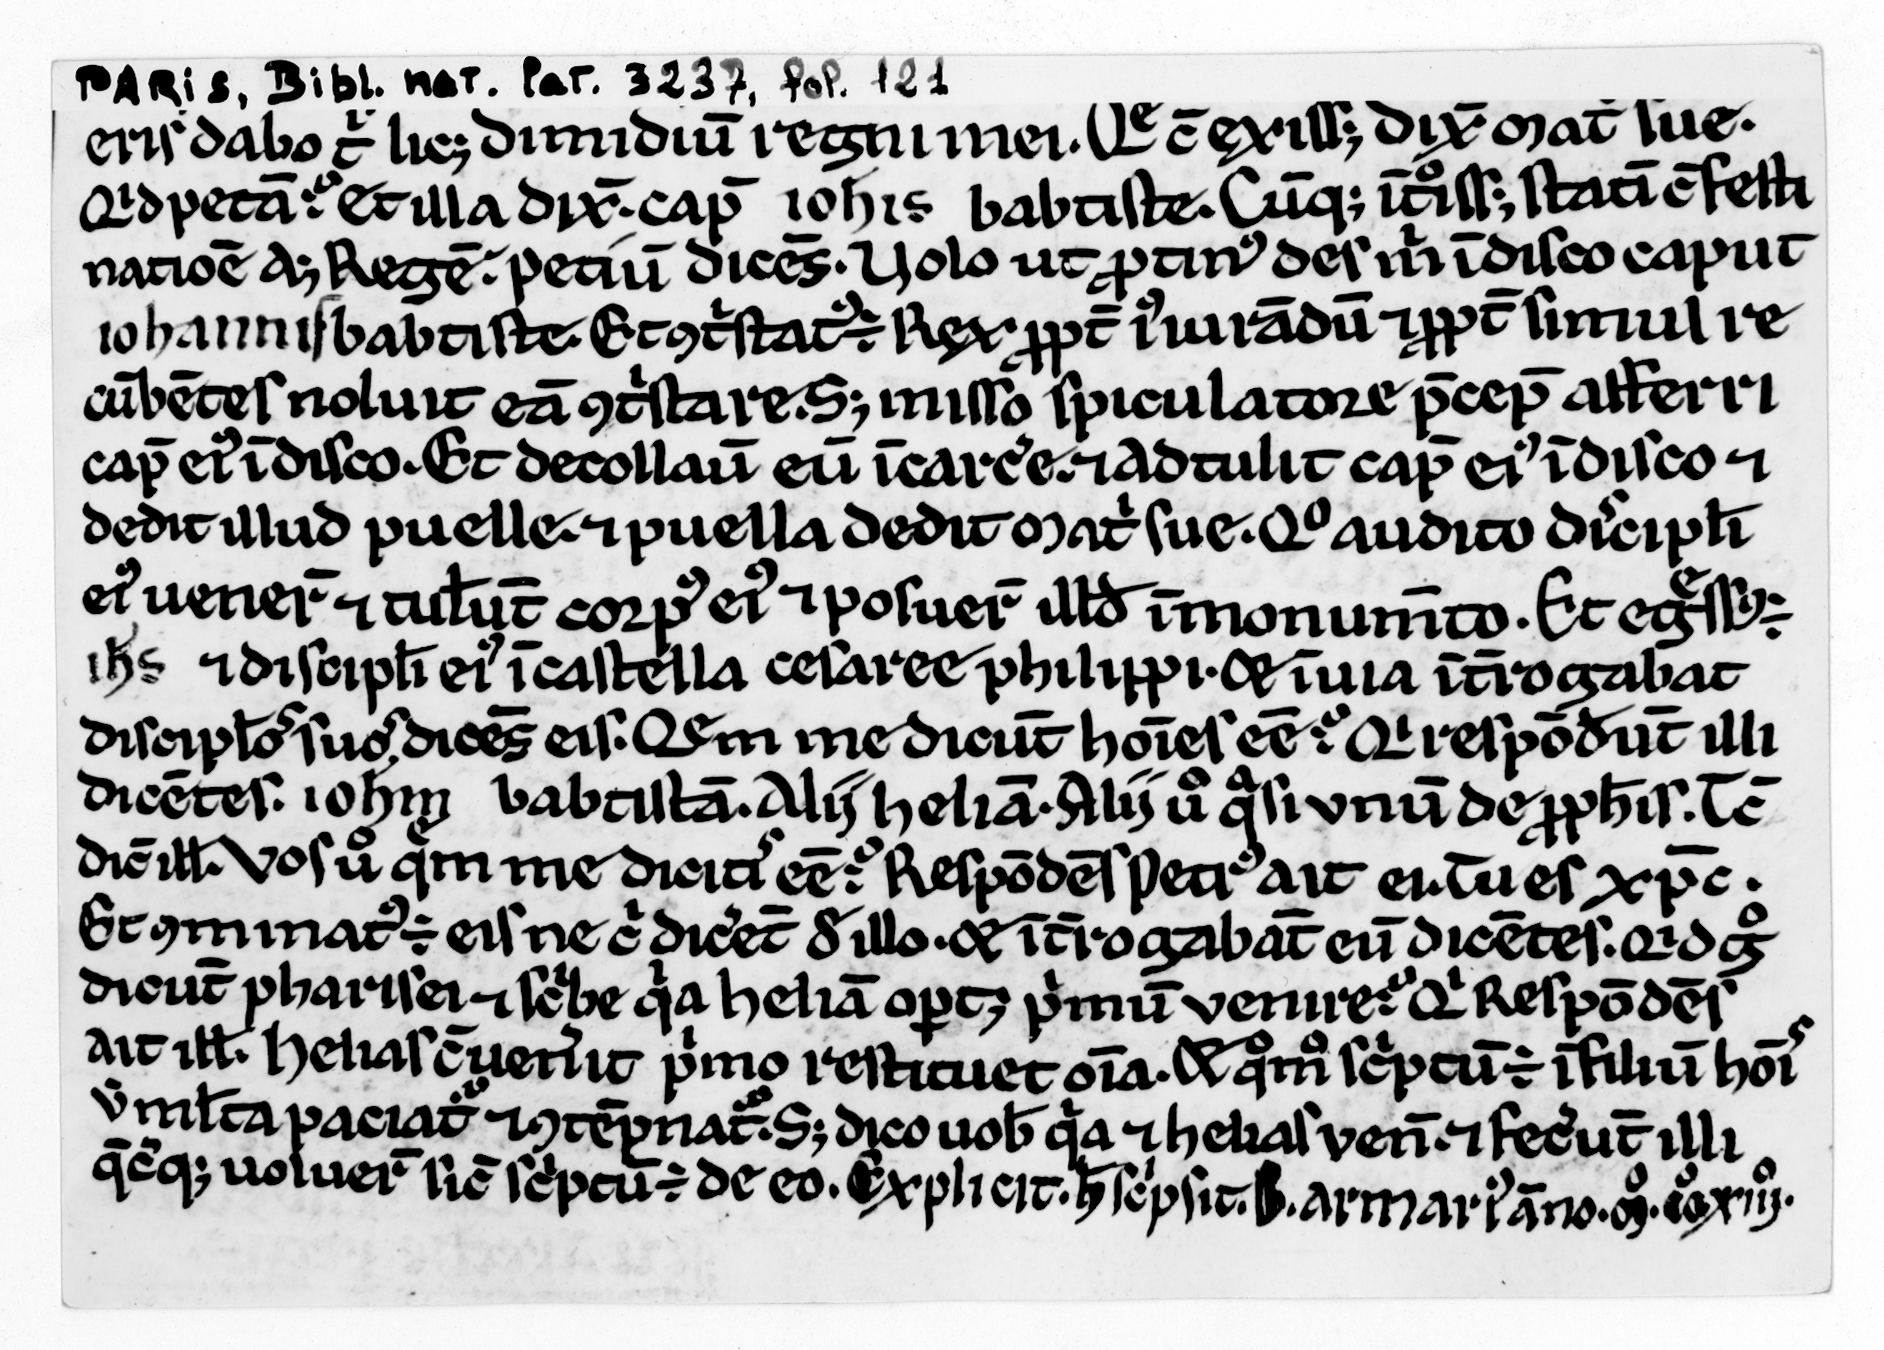 PARIS, Bibl. nat. lat. 3237, fol. 121
eris dabo t̄ lic; dimidiū regni mei. Qͤ c̄ exiss; dix̄ mat̄ sue.
Qͥd petā? Et illa dix̄. cap̄ ioħis babtiste. Cūq; ītͦiss; statī c̄ festi
natiōē a; Regē. petiū dicēs. Volo ut ꝑtinꝰ des m̄ īdisco caput
iohannis babtiste. Et ꝯtͥstatꝰ ÷ Rex ꝓpt̄ iꝰiurādū ⁊ ꝓpt̄ simul re
cūbētes noluit eā ꝯtͥstare. S; misso spiculatore p̄cep̄ afferri
cap̄ eiꝰ īdisco. Et decollaū eū īcarc̓e. ⁊ adtulit cap̄ eiꝰ īdisco ⁊
dedit illud puelle. ⁊ puella dedit matͥ sue. Qͦ audito discipłi
eiꝰ uener̄ ⁊ tuł̄ut̄ corpꝰ eiꝰ ⁊ posuer̄ illd̄ īmonum̄to. Et egͤssꝰ ÷
iħs ⁊ discipłi eiꝰ īcastella cesaree philippi. & īuia īt̄rogabat
discipłos suos dicēs eis. Qͤm me dicut̄ hoīes eē? Qͥ respōdut̄ illi
dicētes. ioħm babtistā. Alij heliā. Alij uͦ qͣsi vnū de ꝓpħis. Tc̄
dic̄ ill. Vos uͦ qͤm me diciti eē? Respōdēs Petrꝰ ait ei. Tu es xp̄c.
Et ꝯminatꝰ ÷ eis ne cͥ dic̓et̄ đ illo. & īt̄rogabāt eū dicētes. Qͥd gͦ
dicut̄ pharisei ⁊ scͥbe qͥa heliā oꝑt; pͥmū venire? Qͥ Respōdēs
ait ill. helias c̄ uen̓it pͥmo restituet oīa. & qͦmͦ scͥptū ÷ īfiliū hoīs
v̄ młta paciat̄ ⁊ ꝯtēpnat̄. S; dico uob̄ qͥa ⁊ helias ven̄. ⁊ fec̓ut̄ illi
q̄cͥq; uoluer̄ sic̄ scͥptū ÷ de eo. Explicit. ħ scͥpsit. B. armariꝰ āno. mͦ. cͦcͦxiiij.